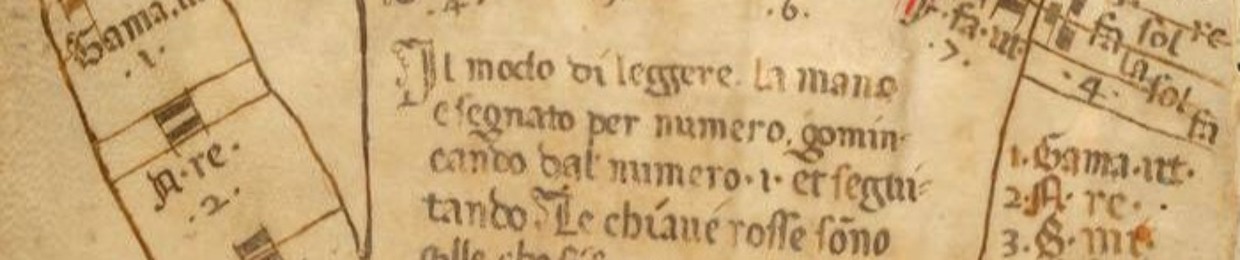 Gama.ut
.1.
A.re.
.2.
.4.
.6.
Il modo di leggere. la mano
e segnato per numero. gomin-
cando dal numero.1. et segui-
tando. Le chiaue rosse sōno
F.fa.ut
.7.
fa sol re
la sol fa
.4.
1. Gama.ut.
2. A re.
3. B. mi.